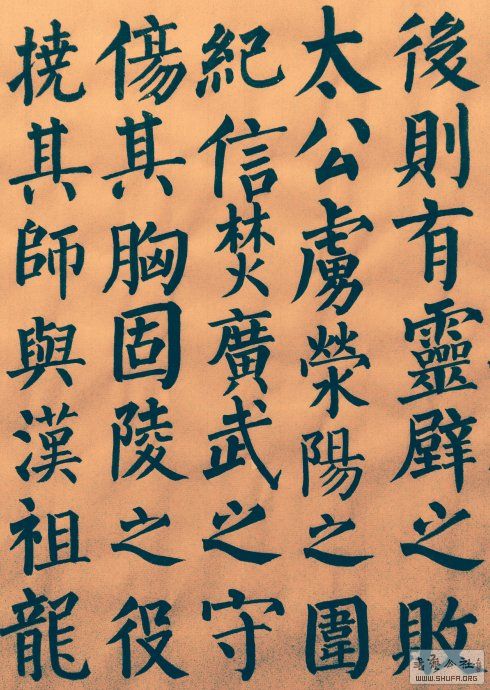 後則有靈壁之敗
太公虜滎陽之圍
紀信焚廣武之守
傷其胸固陵之役
撓其師與漢祖龍
WWW.SHUFA.ORG